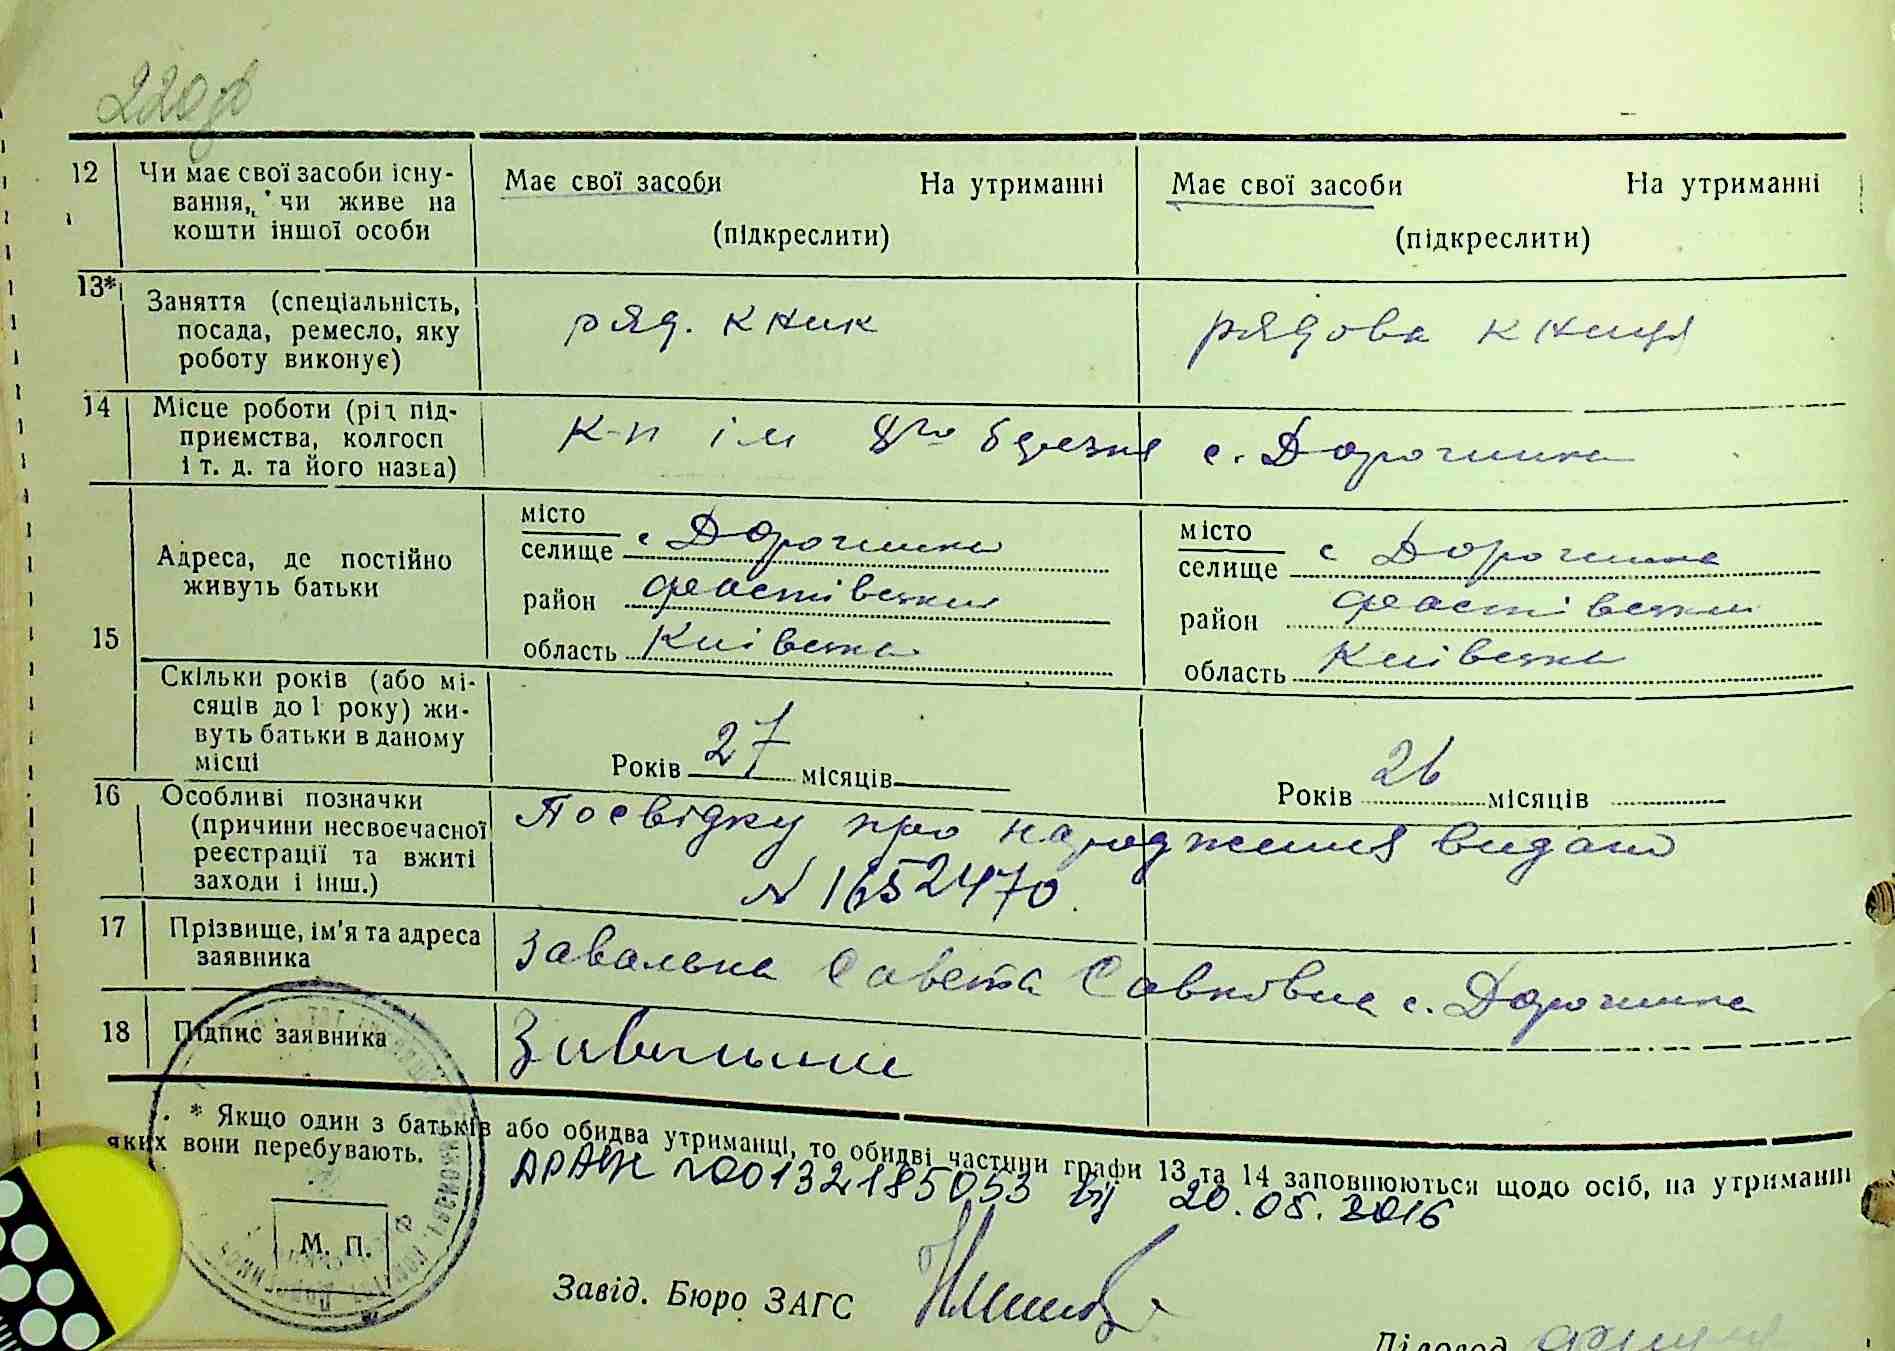 220
12 Чи має свої засоби існу-
вання, чи живе на
кошти іншої особи
Має свої засоби На утриманні
(підкреслити)
Має свої засоби На утриманні
(підкреслити)
13* Заняття (спеціальність,
посада, ремесло, яку
роботу виконує)
ряд. к-ник
рядова к-ниця
14 Місце роботи (рід під-
приємства, колгосп
і т. д. та його назва)
К-п ім 8го березня с. Дорогинка
15 Адреса, де постійно
живуть батьки
місто
селище с Дорогинка
район Фастівський
область Київська
місто
селище с Дорогинка
район Фастівський
область Київська
Скільки років (або мі-
сяців до 1 року) жи-
вуть батьки в даному
місці
Років 27 місяців
Років 26 місяців
16 Особливі позначки
(причини несвоєчасної
реєстрації та вжиті
заходи і інш.)
Посвідку про народження видано
N 1652470.
17 Прізвище, ім'я та адреса
заявника
Завальна Савета Савковна с. Дорогинка
18 Підпис заявника
Завальна
* Якщо один з батьків або обидва утриманці, то обидві частини графи 13 та 14 заповнюються щодо осіб, на утриманні
яких вони перебувають.
№00132185053 від 20.05.2016
М. П.
Завід. Бюро ЗАГС